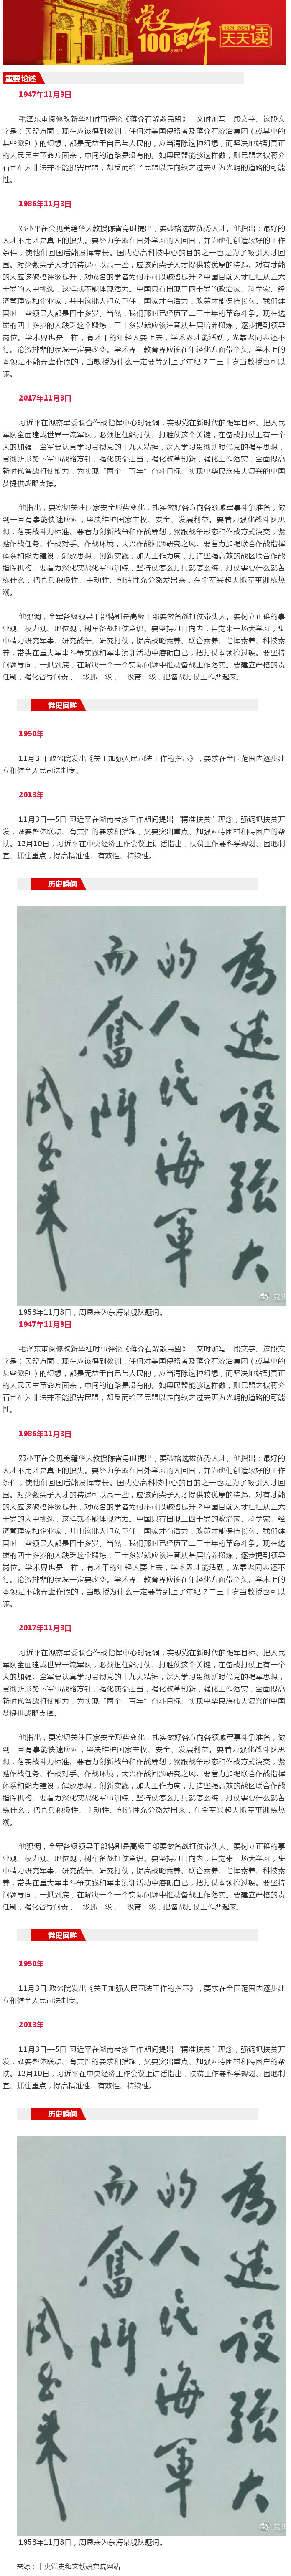 党史
百年
100
years
1921-2021
天天读
重要论述
1947年11月3日
毛泽东审阅修改新华社时事评论《蒋介石解散民盟》一文时加写一段文字。这段文
字是：民盟方面，现在应该得到教训，任何对美国侵略者及蒋介石统治集团（或其中的
某些派别）的幻想，都是无益于自己与人民的，应当清除这种幻想，而坚决地站到真正
的人民民主革命方面来，中间的道路是没有的。如果民盟能够这样做，则民盟之被蒋介
石宣布为非法并不能损害民盟，却反而给了民盟以走向较之过去更为光明的道路的可能
性。
1986年11月3日
邓小平在会见美籍华人教授陈省身时提出，要破格选拔优秀人才。他指出：最好的
人才不用才是真正的损失。要努力争取在国外学习的人回国，并为他们创造较好的工作
条件，使他们回国后能发挥专长。国内办高科技中心的目的之一也是为了吸引人才回
国。对少数尖子人才的待遇可以高一些，应该向尖子人才提供较优厚的待遇。对有才能
的人应该破格评级提升，对成名的学者为何不可以破格提升？中国目前人才往往从五六
十岁的人中挑选，这样就不能体现活力。中国只有出现三四十岁的政治家、科学家、经
济管理家和企业家，并由这批人担负重任，国家才有活力，政策才能保持长久。我们建
国时一些领导人都是四十多岁。当然，我们那时已经历了二三十年的革命斗争。现在选
拔的四十多岁的人缺乏这个锻炼，三十多岁就应该注意从基层培养锻炼，逐步提到领导
岗位。学术界也是一样，有才干的年轻人要上去，学术界才能活跃，光靠老同志还不
行。论资排辈的状况一定要改变。学术界、教育界应该在年轻化方面带个头。学术上的
本领是不能弄虚作假的，当教授为什么一定要等到上了年纪？二三十岁当教授也可以
嘛。
2017年11月3日
习近平在视察军委联合作战指挥中心时强调，实现党在新时代的强军目标、把人民
军队全面建成世界一流军队，必须扭住能打仗、打胜仗这个关键，在备战打仗上有一个
大的加强。全军要认真学习贯彻党的十九大精神，深入学习贯彻新时代党的强军思想，
贯彻新形势下军事战略方针，强化使命担当，强化改革创新，强化工作落实，全面提高
新时代备战打仗能力，为实现“两个一百年”奋斗目标、实现中华民族伟大复兴的中国
梦提供战略支撑。
他指出，要密切关注国家安全形势变化，扎实做好各方向各领域军事斗争准备，做
到一旦有事能快速应对，坚决维护国家主权、安全、发展利益。要着力强化战斗队思
想，落实战斗力标准。要着力创新战争和作战筹划，紧跟战争形态和作战方式演变，紧
贴作战任务、作战对手、作战环境，大兴作战问题研究之风。要着力加强联合作战指挥
体系和能力建设，解放思想，创新实践，加大工作力度，打造坚强高效的战区联合作战
指挥机构。要着力深化实战化军事训练，坚持仗怎么打兵就怎么练，打仗需要什么就苦
练什么，把官兵积极性、主动性、创造性充分激发出来，在全军兴起大抓军事训练热
潮。
他强调，全军各级领导干部特别是高级干部要做备战打仗带头人。要树立正确的事
业观、权力观、地位观，树牢备战打仗意识。要坚持刀口向内，自觉来一场大学习，集
中精力研究军事、研究战争、研究打仗，提高战略素养、联合素养、指挥素养、科技素
养，带头在重大军事斗争实践和军事演训活动中磨砺自己，把打仗本领搞过硬。要坚持
问题导向，一抓到底，在解决一个一个实际问题中推动备战工作落实。要建立严格的责
任制，强化督导问责，一级抓一级，一级带一级，把备战打仗工作严起来。
党史回眸
1950年
11月3日 政务院发出《关于加强人民司法工作的指示》，要求在全国范围内逐步建
立和健全人民司法制度。
2013年
11月3日—5日 习近平在湖南考察工作期间提出“精准扶贫”理念，强调抓扶贫开
发，既要整体联动、有共性的要求和措施，又要突出重点、加强对特困村和特困户的帮
扶。12月10日，习近平在中央经济工作会议上讲话指出，扶贫工作要科学规划、因地制
宜、抓住重点，提高精准性、有效性、持续性。
历史瞬间
为建设强大
的人民海军
而奋斗
周恩来
1953年11月3日，周恩来为东海某舰队题词。
1947年11月3日
毛泽东审阅修改新华社时事评论《蒋介石解散民盟》一文时加写一段文字。这段文
字是：民盟方面，现在应该得到教训，任何对美国侵略者及蒋介石统治集团（或其中的
某些派别）的幻想，都是无益于自己与人民的，应当清除这种幻想，而坚决地站到真正
的人民民主革命方面来，中间的道路是没有的。如果民盟能够这样做，则民盟之被蒋介
石宣布为非法并不能损害民盟，却反而给了民盟以走向较之过去更为光明的道路的可能
性。
1986年11月3日
邓小平在会见美籍华人教授陈省身时提出，要破格选拔优秀人才。他指出：最好的
人才不用才是真正的损失。要努力争取在国外学习的人回国，并为他们创造较好的工作
条件，使他们回国后能发挥专长。国内办高科技中心的目的之一也是为了吸引人才回
国。对少数尖子人才的待遇可以高一些，应该向尖子人才提供较优厚的待遇。对有才能
的人应该破格评级提升，对成名的学者为何不可以破格提升？中国目前人才往往从五六
十岁的人中挑选，这样就不能体现活力。中国只有出现三四十岁的政治家、科学家、经
济管理家和企业家，并由这批人担负重任，国家才有活力，政策才能保持长久。我们建
国时一些领导人都是四十多岁。当然，我们那时已经历了二三十年的革命斗争。现在选
拔的四十多岁的人缺乏这个锻炼，三十多岁就应该注意从基层培养锻炼，逐步提到领导
岗位。学术界也是一样，有才干的年轻人要上去，学术界才能活跃，光靠老同志还不
行。论资排辈的状况一定要改变。学术界、教育界应该在年轻化方面带个头。学术上的
本领是不能弄虚作假的，当教授为什么一定要等到上了年纪？二三十岁当教授也可以
嘛。
2017年11月3日
习近平在视察军委联合作战指挥中心时强调，实现党在新时代的强军目标、把人民
军队全面建成世界一流军队，必须扭住能打仗、打胜仗这个关键，在备战打仗上有一个
大的加强。全军要认真学习贯彻党的十九大精神，深入学习贯彻新时代党的强军思想，
贯彻新形势下军事战略方针，强化使命担当，强化改革创新，强化工作落实，全面提高
新时代备战打仗能力，为实现“两个一百年”奋斗目标、实现中华民族伟大复兴的中国
梦提供战略支撑。
他指出，要密切关注国家安全形势变化，扎实做好各方向各领域军事斗争准备，做
到一旦有事能快速应对，坚决维护国家主权、安全、发展利益。要着力强化战斗队思
想，落实战斗力标准。要着力创新战争和作战筹划，紧跟战争形态和作战方式演变，紧
贴作战任务、作战对手、作战环境，大兴作战问题研究之风。要着力加强联合作战指挥
体系和能力建设，解放思想，创新实践，加大工作力度，打造坚强高效的战区联合作战
指挥机构。要着力深化实战化军事训练，坚持仗怎么打兵就怎么练，打仗需要什么就苦
练什么，把官兵积极性、主动性、创造性充分激发出来，在全军兴起大抓军事训练热
潮。
他强调，全军各级领导干部特别是高级干部要做备战打仗带头人。要树立正确的事
业观、权力观、地位观，树牢备战打仗意识。要坚持刀口向内，自觉来一场大学习，集
中精力研究军事、研究战争、研究打仗，提高战略素养、联合素养、指挥素养、科技素
养，带头在重大军事斗争实践和军事演训活动中磨砺自己，把打仗本领搞过硬。要坚持
问题导向，一抓到底，在解决一个一个实际问题中推动备战工作落实。要建立严格的责
任制，强化督导问责，一级抓一级，一级带一级，把备战打仗工作严起来。
党史回眸
1950年
11月3日 政务院发出《关于加强人民司法工作的指示》，要求在全国范围内逐步建
立和健全人民司法制度。
2013年
11月3日—5日 习近平在湖南考察工作期间提出“精准扶贫”理念，强调抓扶贫开
发，既要整体联动、有共性的要求和措施，又要突出重点、加强对特困村和特困户的帮
扶。12月10日，习近平在中央经济工作会议上讲话指出，扶贫工作要科学规划、因地制
宜、抓住重点，提高精准性、有效性、持续性。
历史瞬间
为建设强大
的人民海军
而奋斗
周恩来
1953年11月3日，周恩来为东海某舰队题词。
来源：中央党史和文献研究院网站